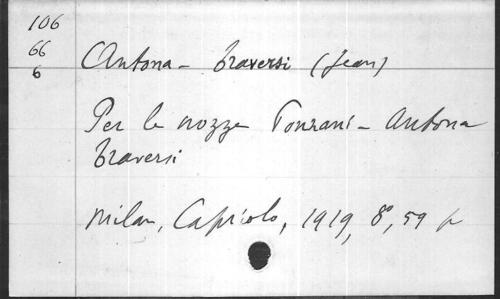 106
66
6
Antona - Traversi (Jean)
Per le nozze Ponzani - Antona
Traversi
Milan, Capriolo, 1919, 8°, 59 p